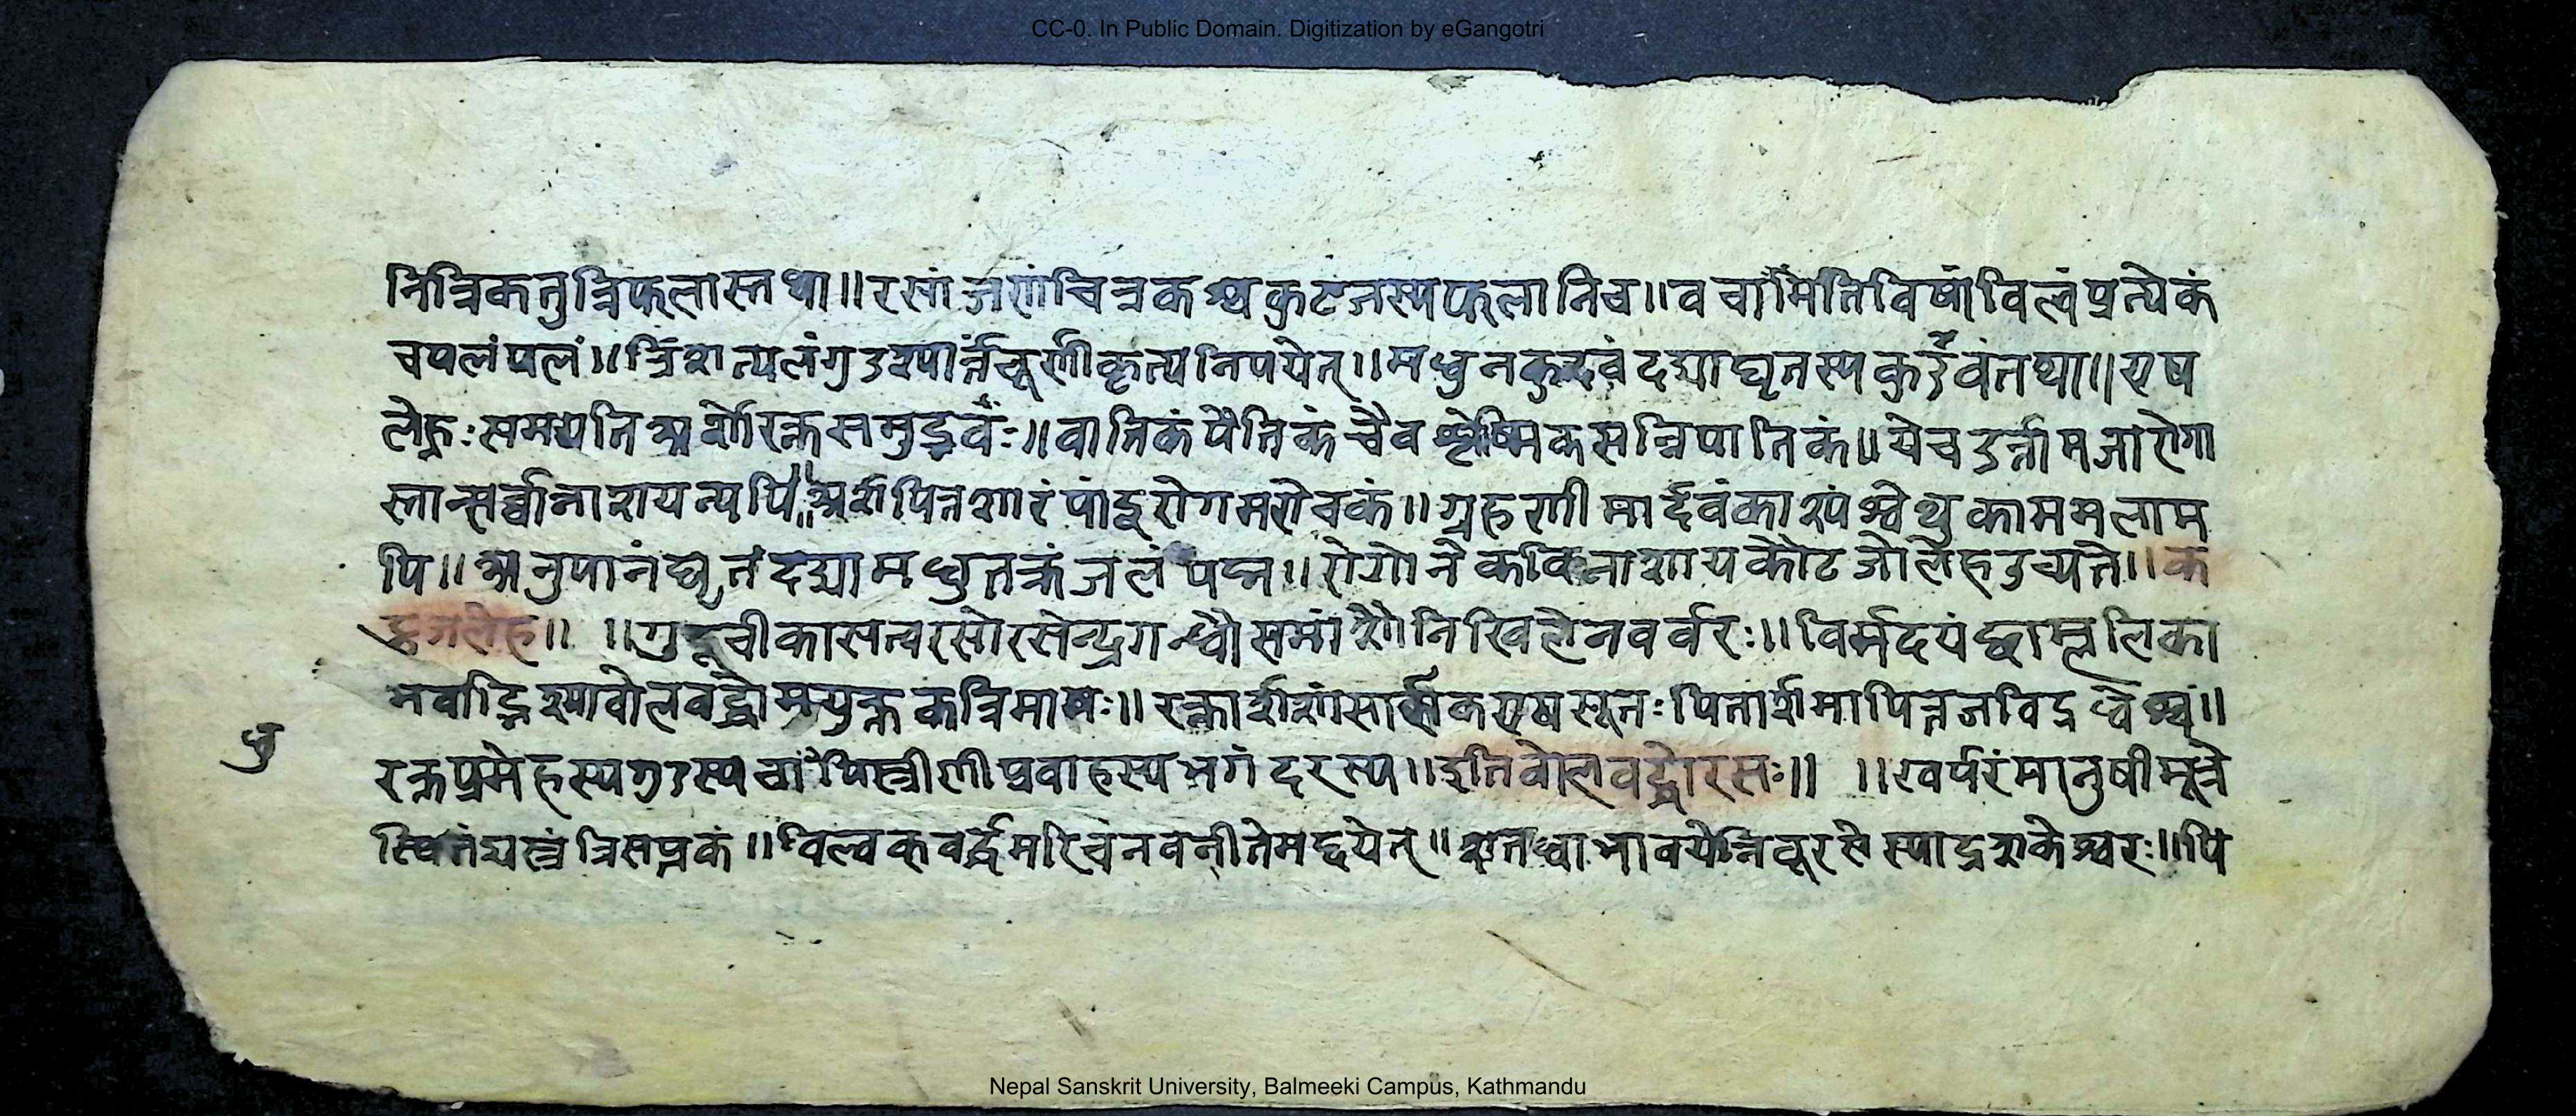 CC-0. In Public Domain. Digitization by eGangotri
नित्रिकतुत्रिफलास्तथा॥रसांजणांचित्रकश्चकुटजस्यफलानिच॥वचामतिविषांविल्वंप्रत्येकं
चपलंपलं॥त्रिंशत्पलंगुडस्यार्त्रचूर्णीकृत्यनिपयेत्॥मधुनकुडवंदद्याघृतस्यकुडवंतथा॥एष
लेहःसमयतिअर्शोरक्तसमुद्भवंः॥वातिकंपैतिकंचैवश्लेष्मिकसन्निपातिकं॥येचदुर्न्नामजारोगा
स्तान्सर्व्वान्नाशयत्यपि॥अर्शपित्तशारंपांडुरोगमरोचकं॥ग्रहणीमार्दवंकार्श्यंश्वेथुकाममलाम
पि॥अनुपानंघृतंदद्यामधुतक्रंजलंपय॥रोगोनैकविनाशायकौटजोलेहउच्यते॥क
ट्टजलेह॥ ॥गुडूचीकासत्वरसोरसेन्द्रगन्धौसमांशौनिखिलेनवर्वरः॥विर्मदयंच्छाम्लूलिका
भवाद्भिश्यावोलवद्धोमयुक्तकत्रिमाषः॥रक्तार्शशांसार्कीकएषसूतःपितार्शमापित्तजविद्रधेश्चं॥
धु
रक्तप्रमेहस्यगुडस्यचापिस्त्रीणीप्रवाहस्यभगंदरस्य॥इतिवोलवद्धोरसः॥ ॥खर्परंमानुषीमूत्रे
स्थितंद्यस्त्रंत्रिसप्तकं॥विल्वकवर्द्धमरिचंनवनीतेमद्दयेत्॥ शतध्वाभावयेन्निवूरसेस्याद्रशकेश्वरः॥पि
Nepal Sanskrit University, Balmeeki Campus, Kathmandu